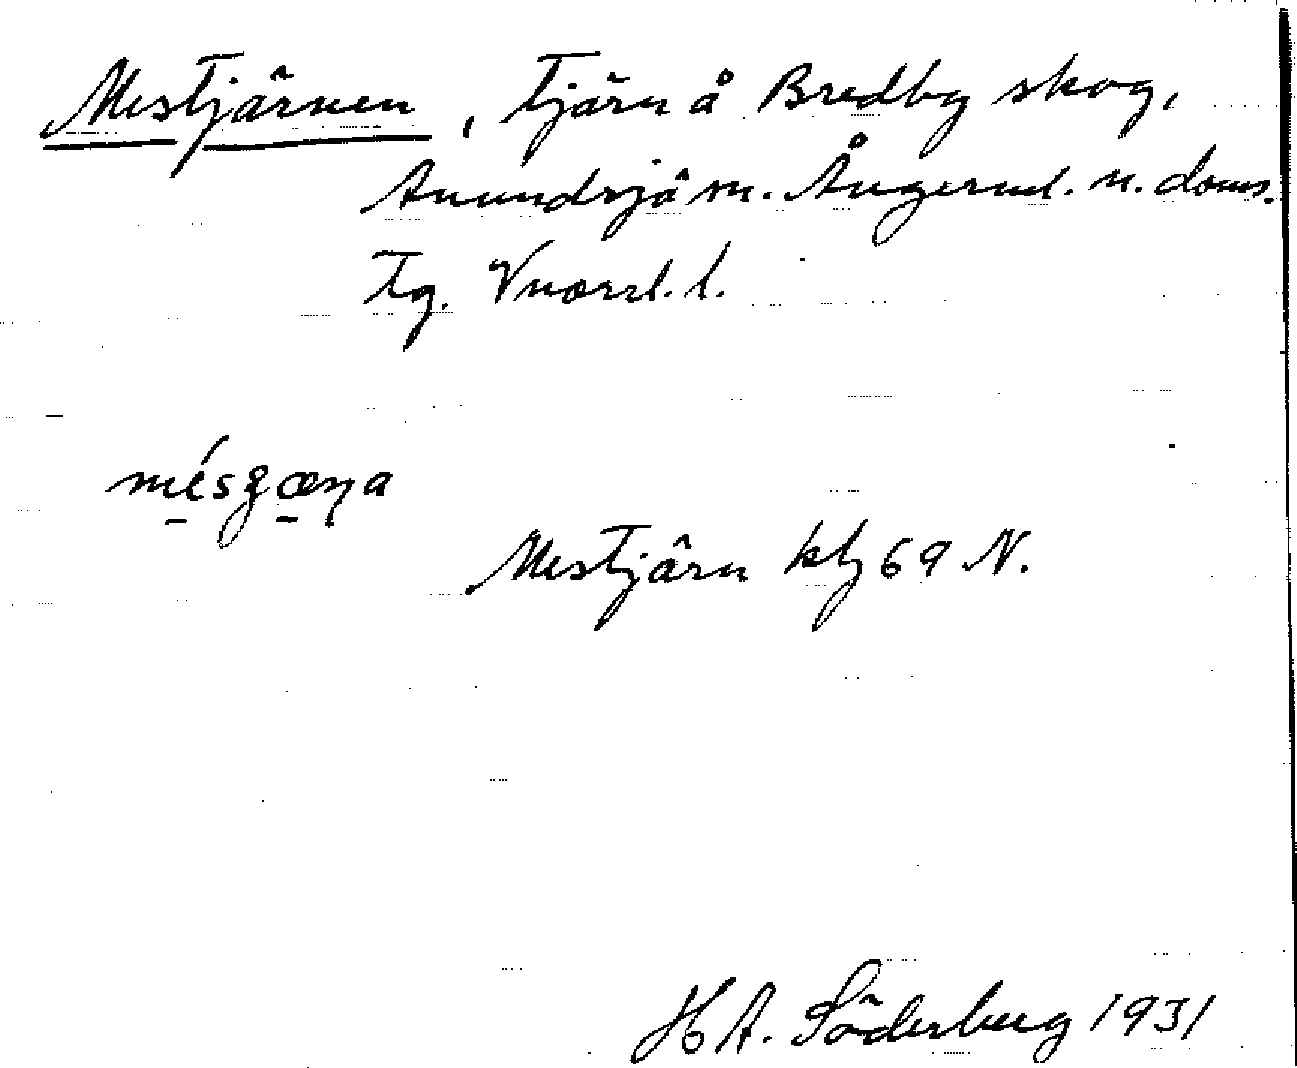 Mestjärnen, tjärn å Bredby skog,
Anundsjö sn. Ångerml. n. doms.
tg. Vnorrl. l.
Mestjärn kbl 69 N.
H A. Söderberg 1931